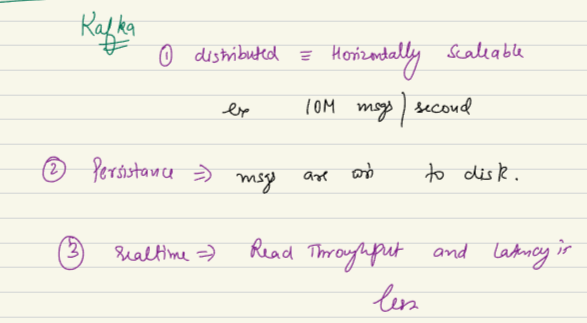 Kafka
① distributed ≡ Horizontally Scaleable
ex 10M msgs / second
② Persistance ⇒ msgs are to disk.
③ realtime ⇒ Read Throughput and latency is
less